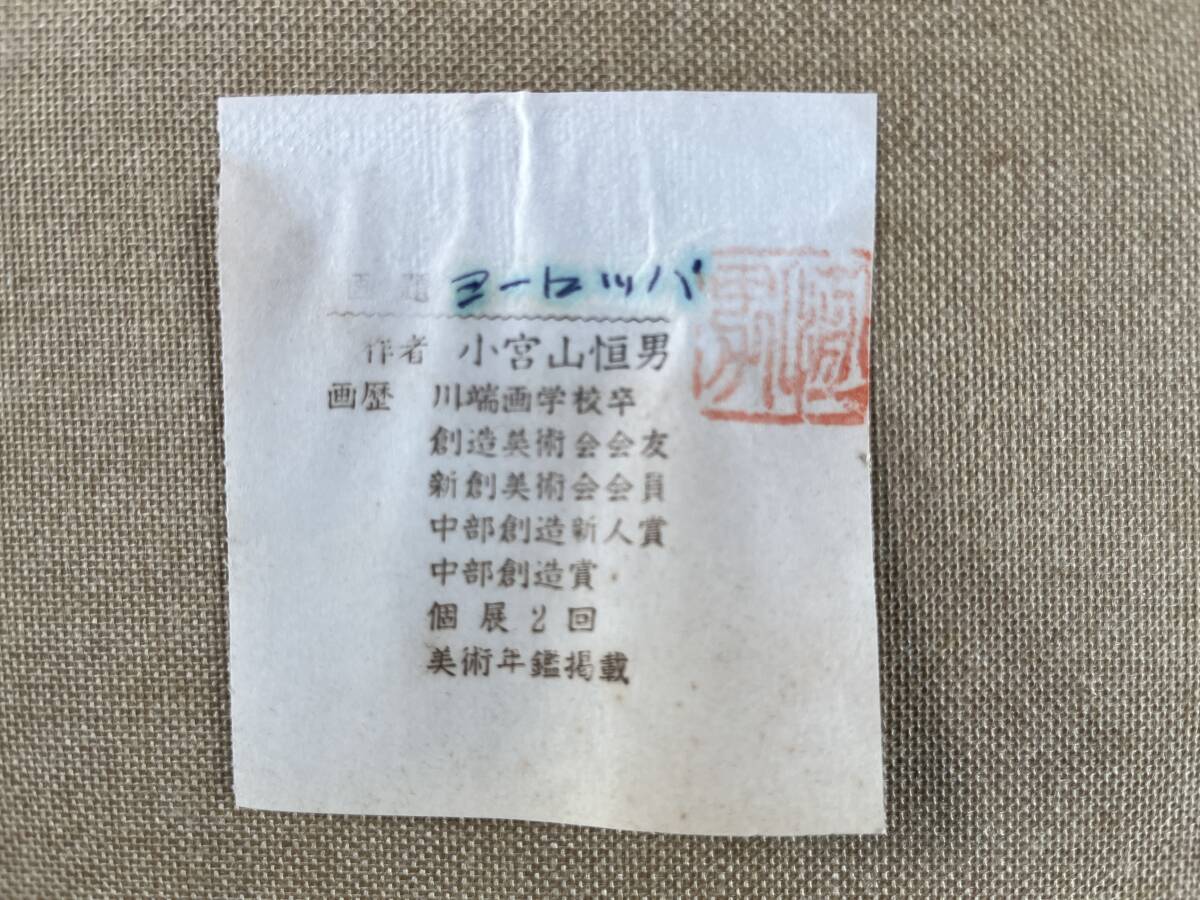 画題 ヨーロッパ
作者 小宮山恒男
画歴 川端画学校卒
創造美術会会友
新創美術会会員
中部創造新人賞
中部創造賞
個展2回
美術年鑑掲載